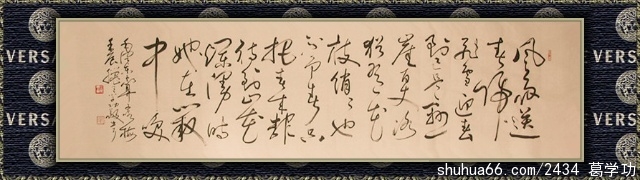 风雨送
春归
飞雪迎春
到已是悬
崖百丈冰
犹有花
枝俏〻也
不争春只
把春来报
待到山花
烂漫时
她在丛
中笑
VERS
VERSA
VERS
VERSA
shuhua66.com/2434 葛学功